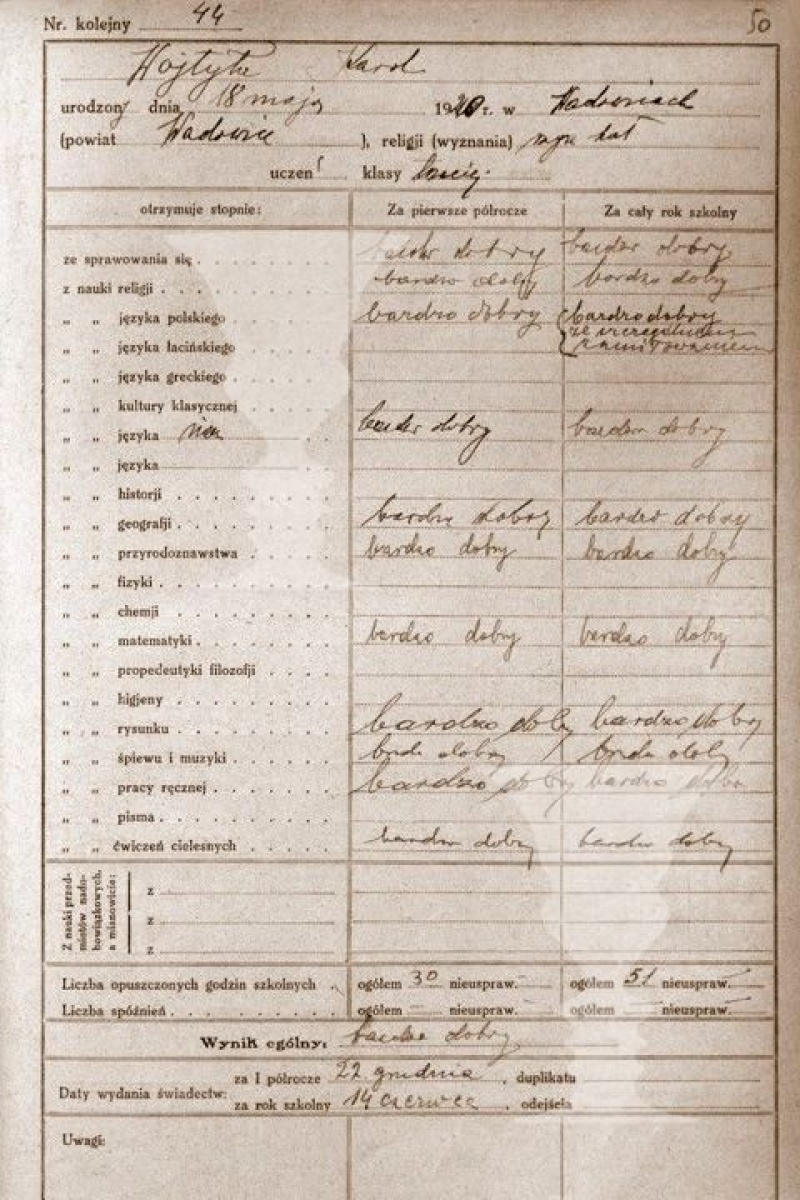 Nr. kolejny 44 50
Wojtyła Karol
urodzony dnia 18 maja 1920 r. w Wadowicach
(powiat Wadowice ), religji (wyznania) rzym kat
uczeń klasy
otrzymuje stopnie: Za pierwsze półrocze Za cały rok szkolny
ze sprawowania się bardzo dobry bardzo dobry
z nauki religji bardzo dobry bardzo dobry
„ „ języka polskiego bardzo dobry bardzo dobry
ze szczególnem
„ „ języka łacińskiego zamiłowaniem
„ „ języka greckiego
„ „ kultury klasycznej
„ „ języka niem bardzo dobry bardzo dobry
„ „ języka
„ „ historji
„ „ geografji bardzo dobry bardzo dobry
„ „ przyrodoznawstwa bardzo dobry bardzo dobry
„ „ fizyki
„ „ chemji
„ „ matematyki bardzo dobry bardzo dobry
„ „ propedeutyki filozofji
„ „ higjeny
„ „ rysunku bardzo dobry bardzo dobry
„ „ śpiewu i muzyki bardzo dobry bardzo dobry
„ „ pracy ręcznej bardzo dobry bardzo dobry
„ „ pisma
„ „ ćwiczeń cielesnych bardzo dobry bardzo dobry
Z nauki przed-
miotów nado-
bowiązkowych,
a mianowicie:
z
z
z
Liczba opuszczonych godzin szkolnych ogółem 30 nieuspraw. – ogółem 51 nieuspraw.
Liczba spóźnień ogółem – nieuspraw. ogółem nieuspraw.
Wynik ogólny: bardzo dobry
Daty wydania świadectw:
za I półrocze 22 grudnia , duplikatu
za rok szkolny 14 czerwca , odejścia
Uwagi: